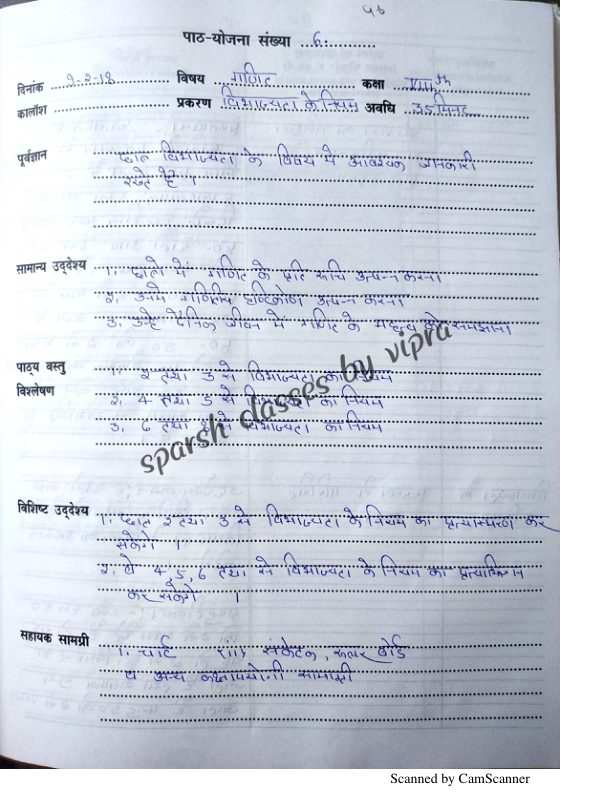 पाठ-योजना संख्या ...6...........
दिनांक ..9-2-18.. विषय ..गणित.. कक्षा ..VIIIth
कालॉश ........ प्रकरण ..विभाज्यता के नियम.. अवधि ..35 मिनट..
पूर्वज्ञान छात्र विभाज्यता के विषय में आवश्यक जानकारी
रखते है ।
सामान्य उद्देश्य 1. छात्रो में गणित के प्रति रुचि उत्पन्न करना
2. उनमे गणितीय दृष्टिकोण उत्पन्न करना
3. उन्हे दैनिक जीवन में गणित के महत्व को समझाना
पाठ्य वस्तु 1. 2 तथा 3 से विभाज्यता का नियम
विश्लेषण 2. 4 तथा 5 से विभाज्यता का नियम
3. 6 तथा से विभाज्यता का नियम
sparsh classes by vipra
विशिष्ट उद्देश्य 1. छात्र 2 तथा 3 से विभाज्यता के नियम का प्रत्यास्मरण कर
सकेगे ।
2. वे 4, 5, 6 तथा से विभाज्यता के नियम का प्रत्याभिज्ञान
कर सकेगे ।
सहायक सामग्री 1. चार्ट (ii) संकेतक, रूलर बोर्ड
व अन्य कक्षोपयोगी सामाग्री
Scanned by CamScanner